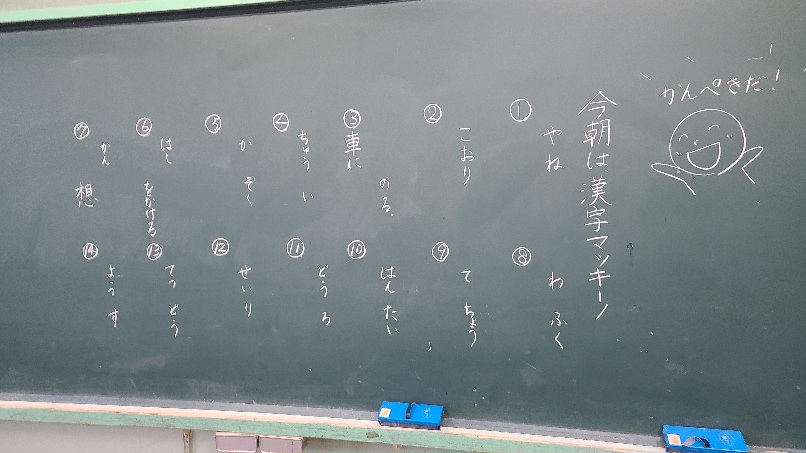 かんぺきだ!
今朝は、漢字マッキーノ
① やね
② こおり
③ 車に のる。
④ ちゅう い
⑤ か ぞく
⑥ はし をかける
⑦ かん 想
⑧ わ ふく
⑨ て ちょう
⑩ はん たい
⑪ どう ろ
⑫ せい り
⑬ てつ どう
⑭ よう す